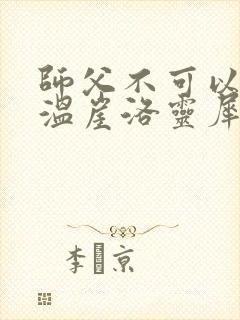 師父不可以
溫崖洛靈犀
李 京